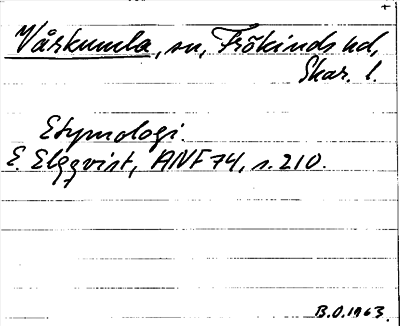 +
Vårkumla, sn, Frökinds hd,
Skar. l.
Etymologi.
E. Elgqvist, ANF 74, s. 210.
B.O. 1963.